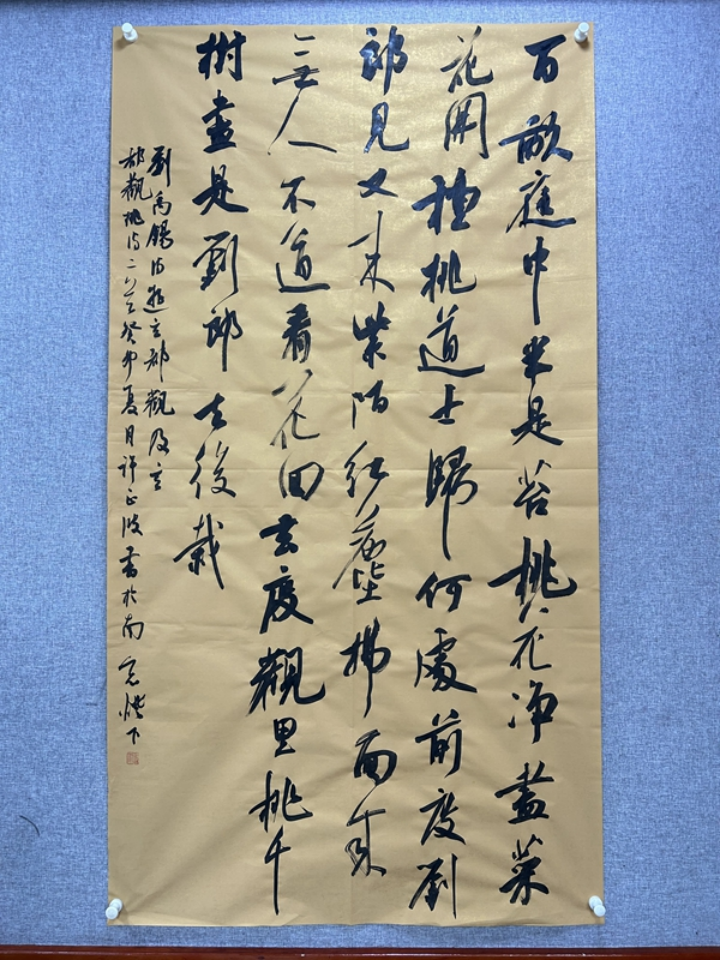 百畝庭中半是苔桃花净盡菜
花開種桃道士歸何處前度劉
郎見又来紫陌红塵拂面来
無人不道看花回玄度觀里桃千
樹盡是劉郎去後栽
劉禹錫詩遊玄都觀及玄
都觀桃詩二首癸卯夏月許正波書於南窗燈下